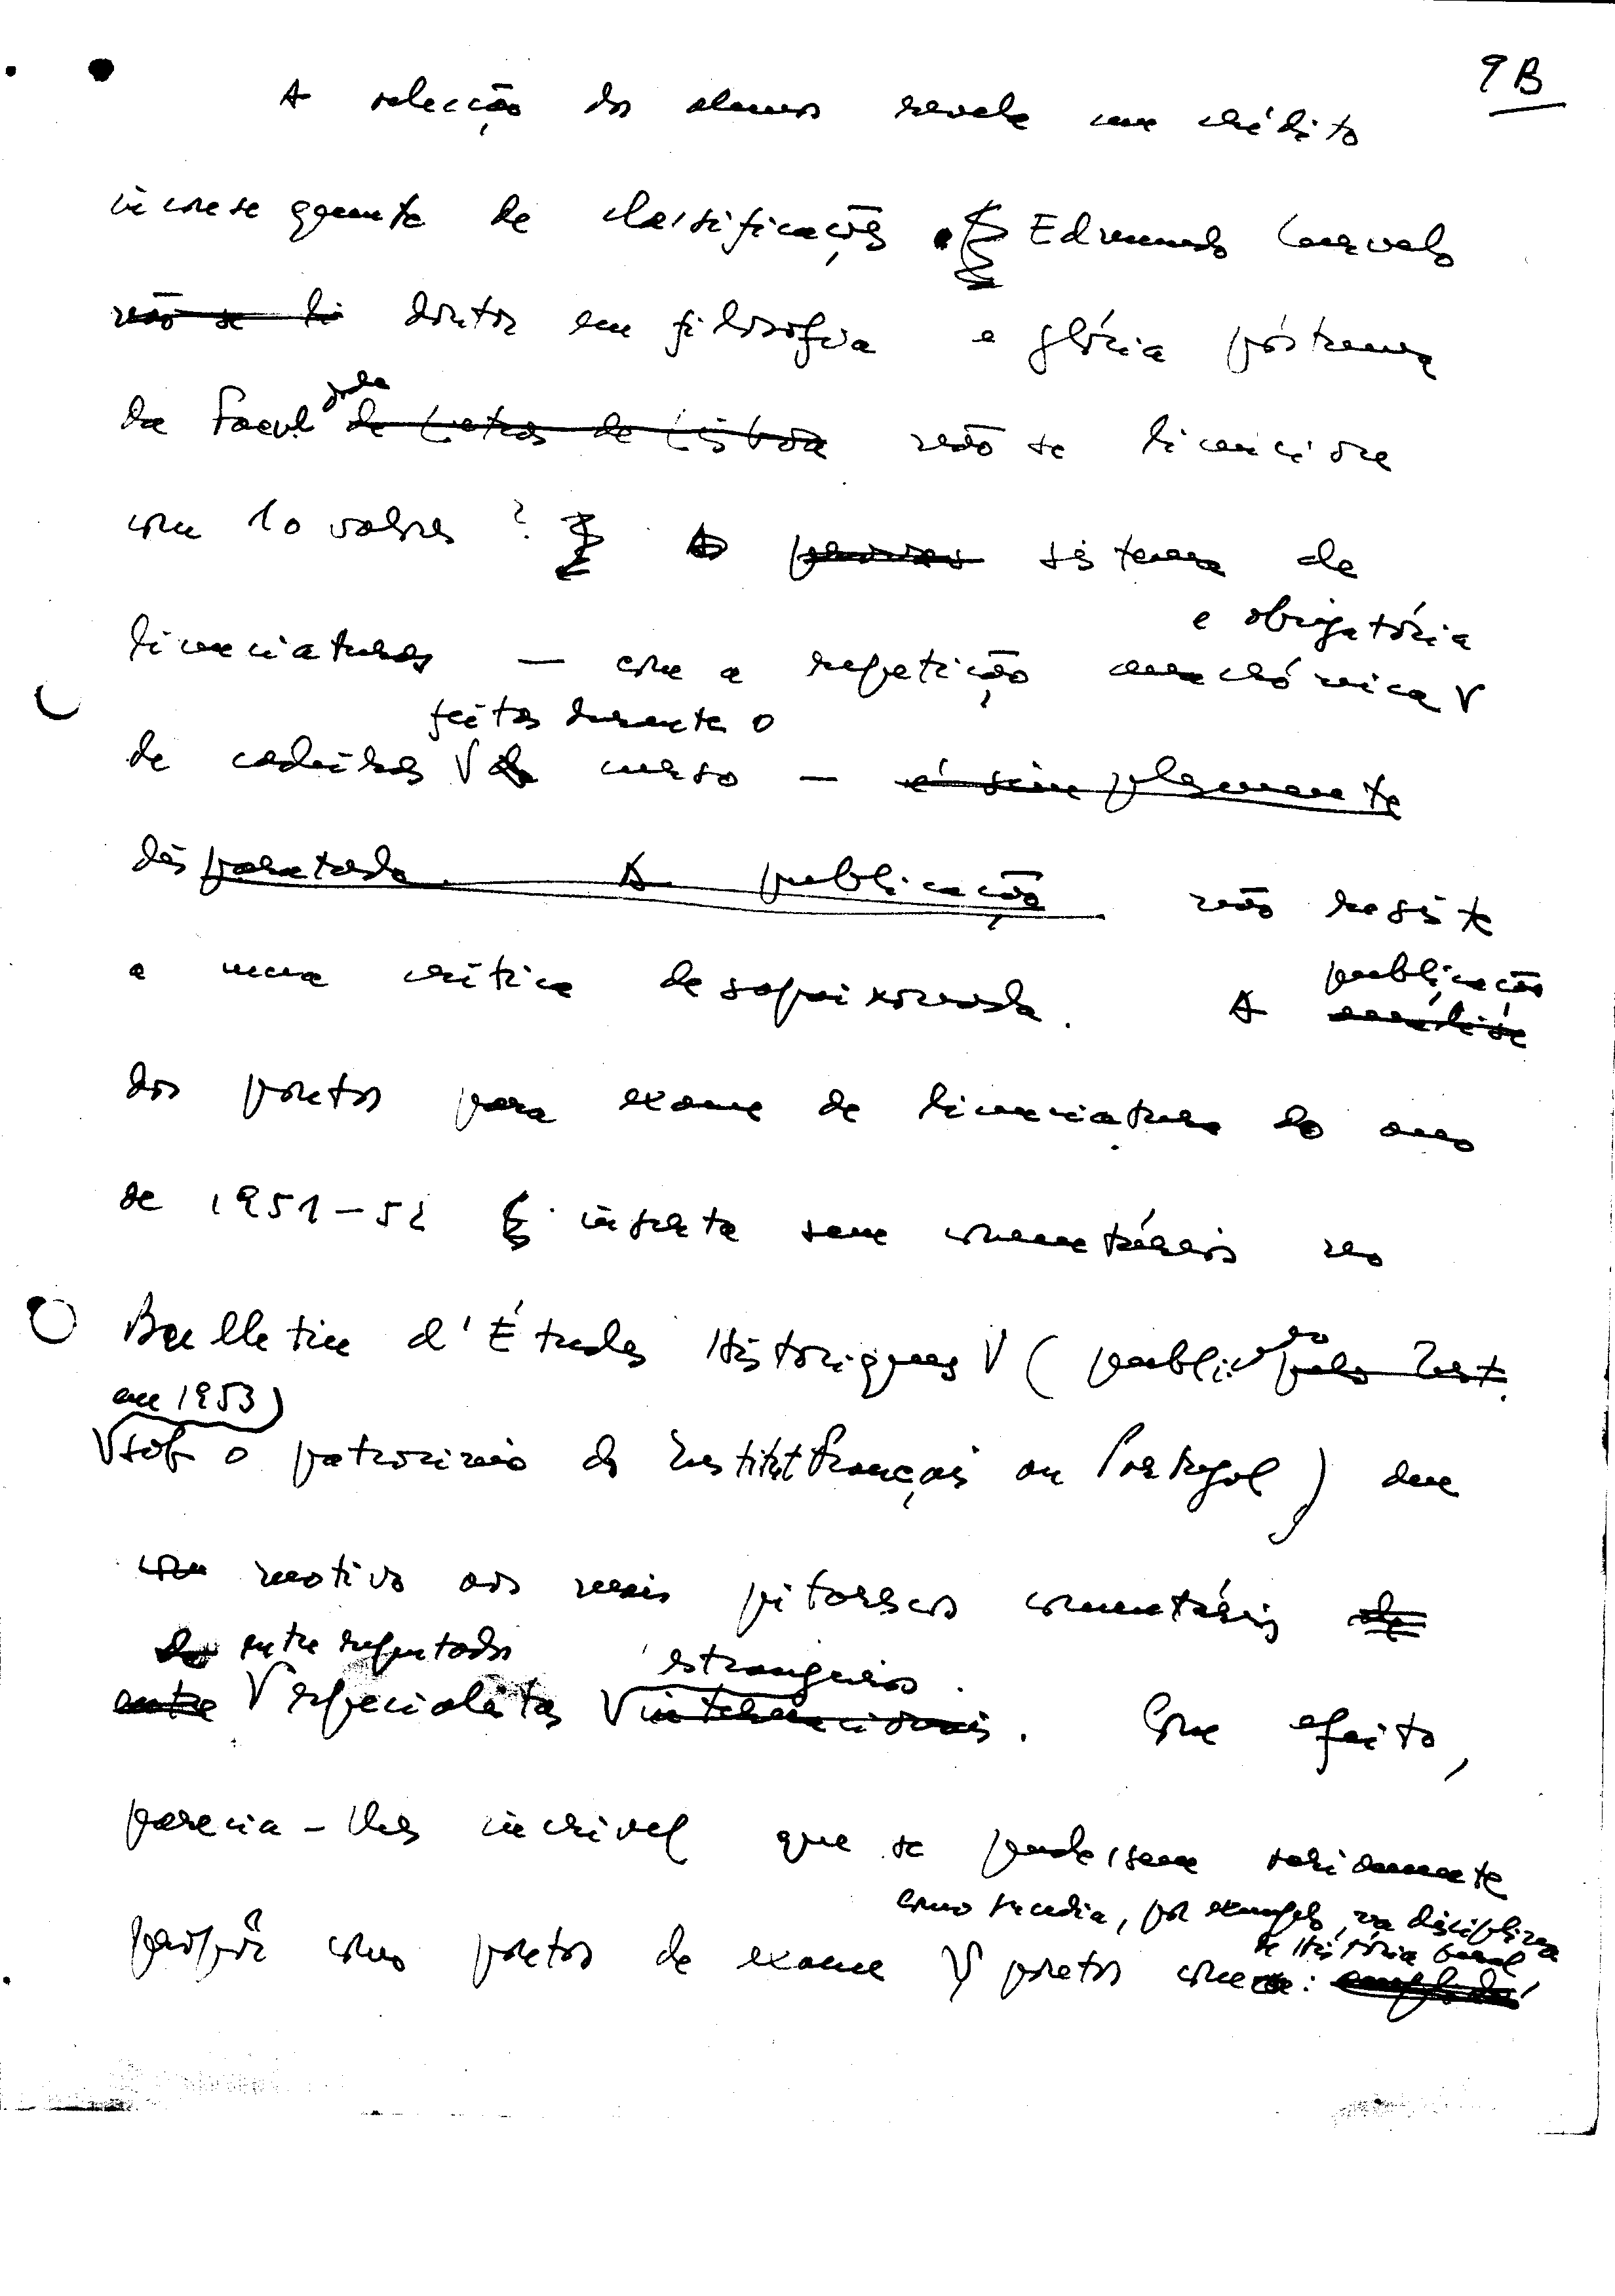 9B
A selecção dos alunos revela um crédito
inconsequente de classificações. Edmundo Curvelo
não se li doutor em filosofia e glória póstuma
da Faculdade de Letras de Lisboa não se licenciou
com 10 valores? O sistema de
licenciaturas — com a repetição anacrónica e obrigatória
de cadeiras feitas durante o curso — é simplesmente
disparatada. A publicação não resiste
a uma crítica desapaixonada. A publicação análise
dos pontos para exame de licenciatura do ano
de 1951-52 inserta sem comentários no
Bulletin d'Études Historiques (publicado pelo Inst.
em 1953)
sob o patrocínio do Institut Français au Portugal) deu
com motivo aos mais pitorescos comentários de
entre reputados estrangeiros.
entre especialistas internacionais. Com efeito,
parecia-lhes incrível que se pudessem seriamente
como sucedia, por exemplo, na disciplina
de História Geral
propôr como pontos de exame pontos como: